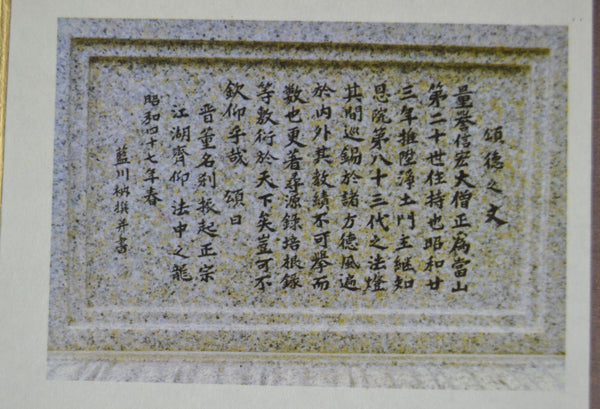 頌徳之文
量誉信宏大僧正為當山
第二十世住持也昭和廿
三年推陞浄土門主継知
恩院第八十三代之法燈
其間巡錫於諸方徳風遍
於内外其教績不可挙而
数也更著尋源録培根録
等敷衍於天下矣豈可不
欽仰乎哉 頌曰
晋董名刹 振起正宗
江湖齊仰 法中之龍
昭和四十七年春
藍川 撰并書